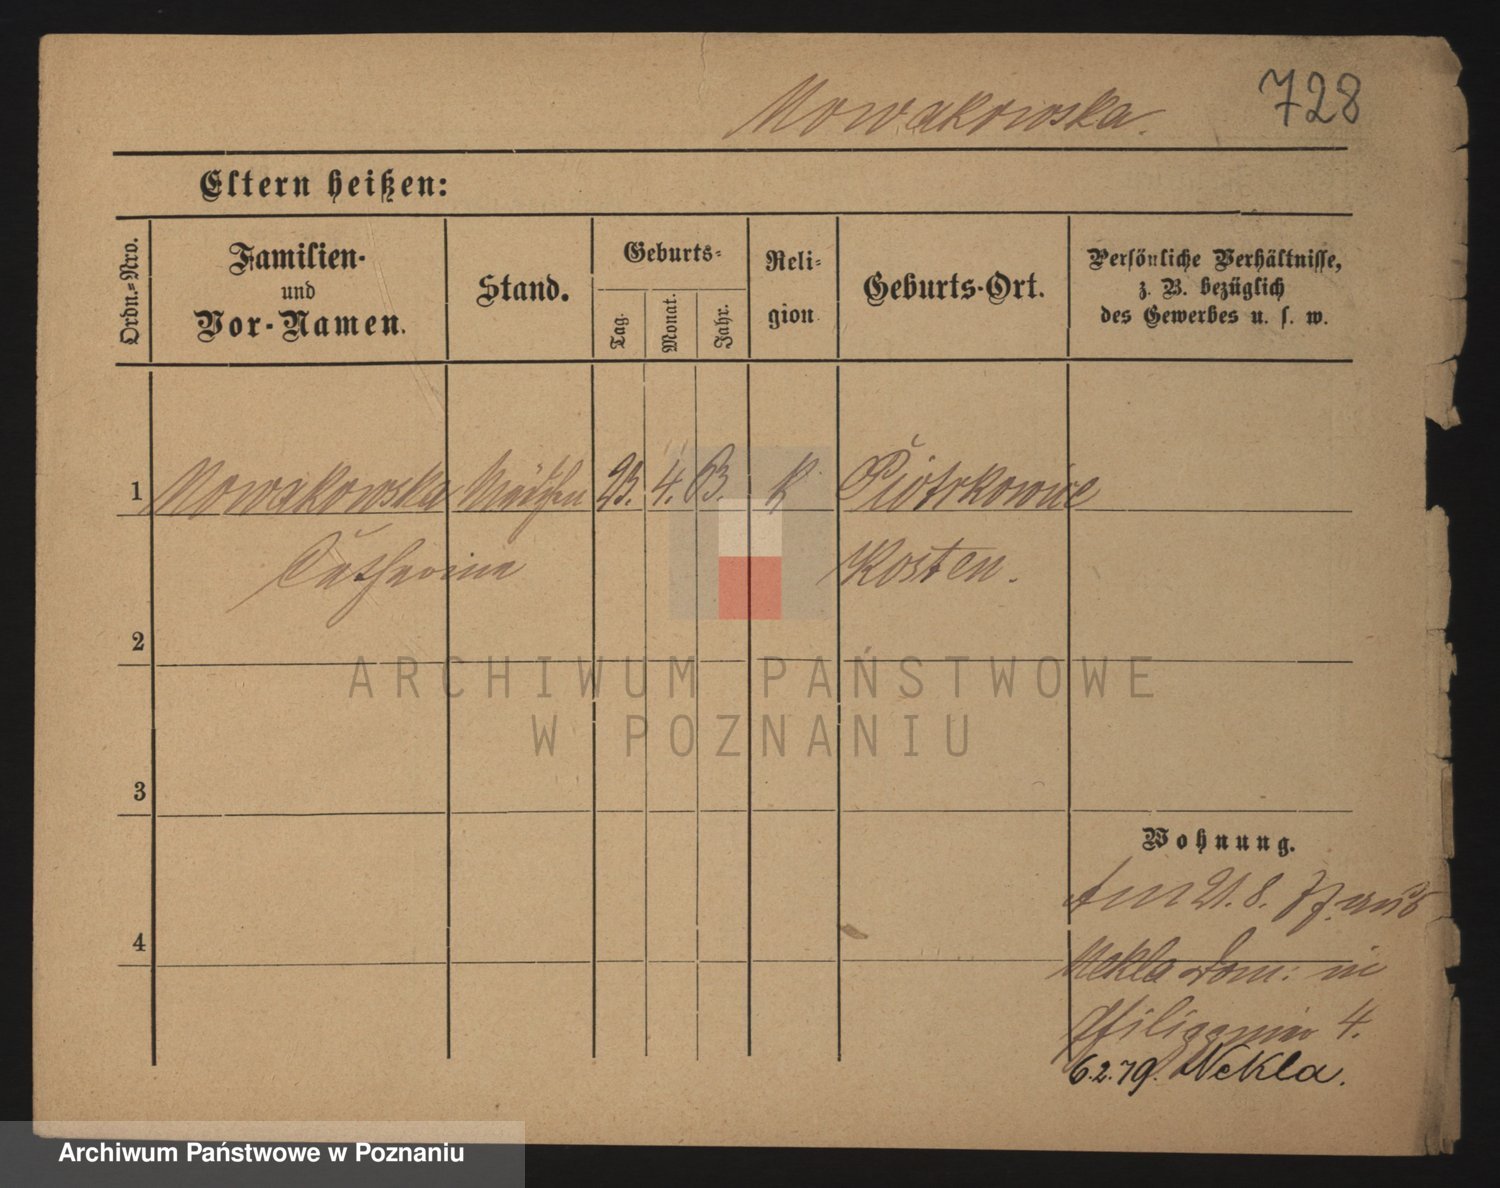 Nowakowska.
728
Eltern heißen:
Ordn.-Nro.
Familien-
und
Vor-Namen.
Stand.
Geburts-
Tag.
Monat.
Jahr.
Reli-
gion
Geburts-Ort.
Persönliche Verhältnisse,
z. B. bezüglich
des Gewerbes u. s. w.
1 Nowakowska Mädchen 23. 4. 63. k Piotrkowice
Catharina Kosten.
2
ARCHIWUM PAŃSTWOWE
W POZNANIU
3
Wohnung.
Am 21. 8. 77. aus
4
Nekla Dom: in
4.
6.2.79. Nekla.
Archiwum Państwowe w Poznaniu